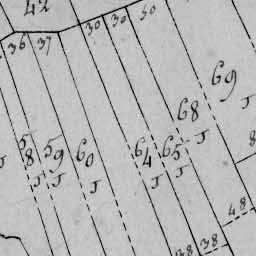 42
36 37 30 30 50
69
J
68
J
8
58 59 60 64 65
J J J J J J
48
38 38